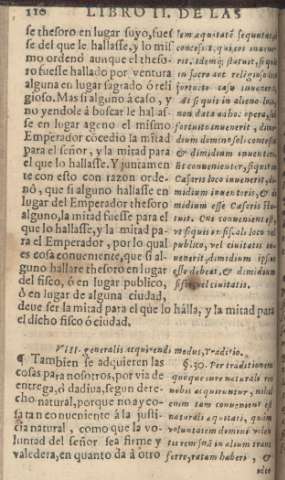 110 LIBRO II. DE LAS
se thesoro en lugar suyo, fues
se del que le hallasse, y lo mis
mo ordenò aunque el theso-
ro fuesse hallado por ventura
alguna en lugar sagrado ò reli
gioso. Mas si alguno à caso, y
no yendole à buscar le hallas-
se en lugar ageno el mismo
Emperador cõcedio la mitad
para el señor, y la mitad para
el que lo hallasse. Y juntamen
te con esto con razon orde-
nò, que si alguno hallasse en
lugar del Emperador thesoro
alguno, la mitad fuesse para el
que lo hallasse, y la mitad pa-
ra el Emperador, por lo qual
es cosa conveniente, que si al-
guno hallare thesoro en lugar
del fisco, ò en lugar publico,
ò en lugar de alguna ciudad,
deve ser la mitad para el que lo halla, y la mitad para
el dicho fisco ò ciudad.
lem æquitatẽ sequutus,
concessit, qui eos invene-
rit. Idemq; statuit, si quis
in sacro aut religioso loco
fortuito casu invenerit.
At si quis in alieno loco,
non data ad hoc opera, sed
fortuitu invenerit, dimi-
dium domino soli concessit,
& dimidium inventori.
Et convenienter, si quis in
Cæsaris loco invenerit, di-
midium inventoris, & di
midium esse Cæsaris sta-
tuit. Cui conveniens est,
ut si quis in fiscali loco vel
publico, vel civitatis in-
venerit, dimidium ipsius
esse debeat, & dimidium
fisci vel civitatis.
VIII. generalis acquirendi modus, traditio.
¶ Tambien se adquieren las
cosas para nosotros, por via de
entrega, ò dadiva, segun dere-
cho natural, porque no ay co-
sa tan conueniente à la justi-
cia natural, como que la vo-
luntad del señor sea firme y
valedera, en quanto da à otro
§.30. Per traditionem
quoque jure naturali res
nobis acquiruntur, nihil
enim tam conveniens est
naturali æquitati, quàm
voluntatem domini volen
tis rem suã in alium trans
ferre, ratam haberi, &